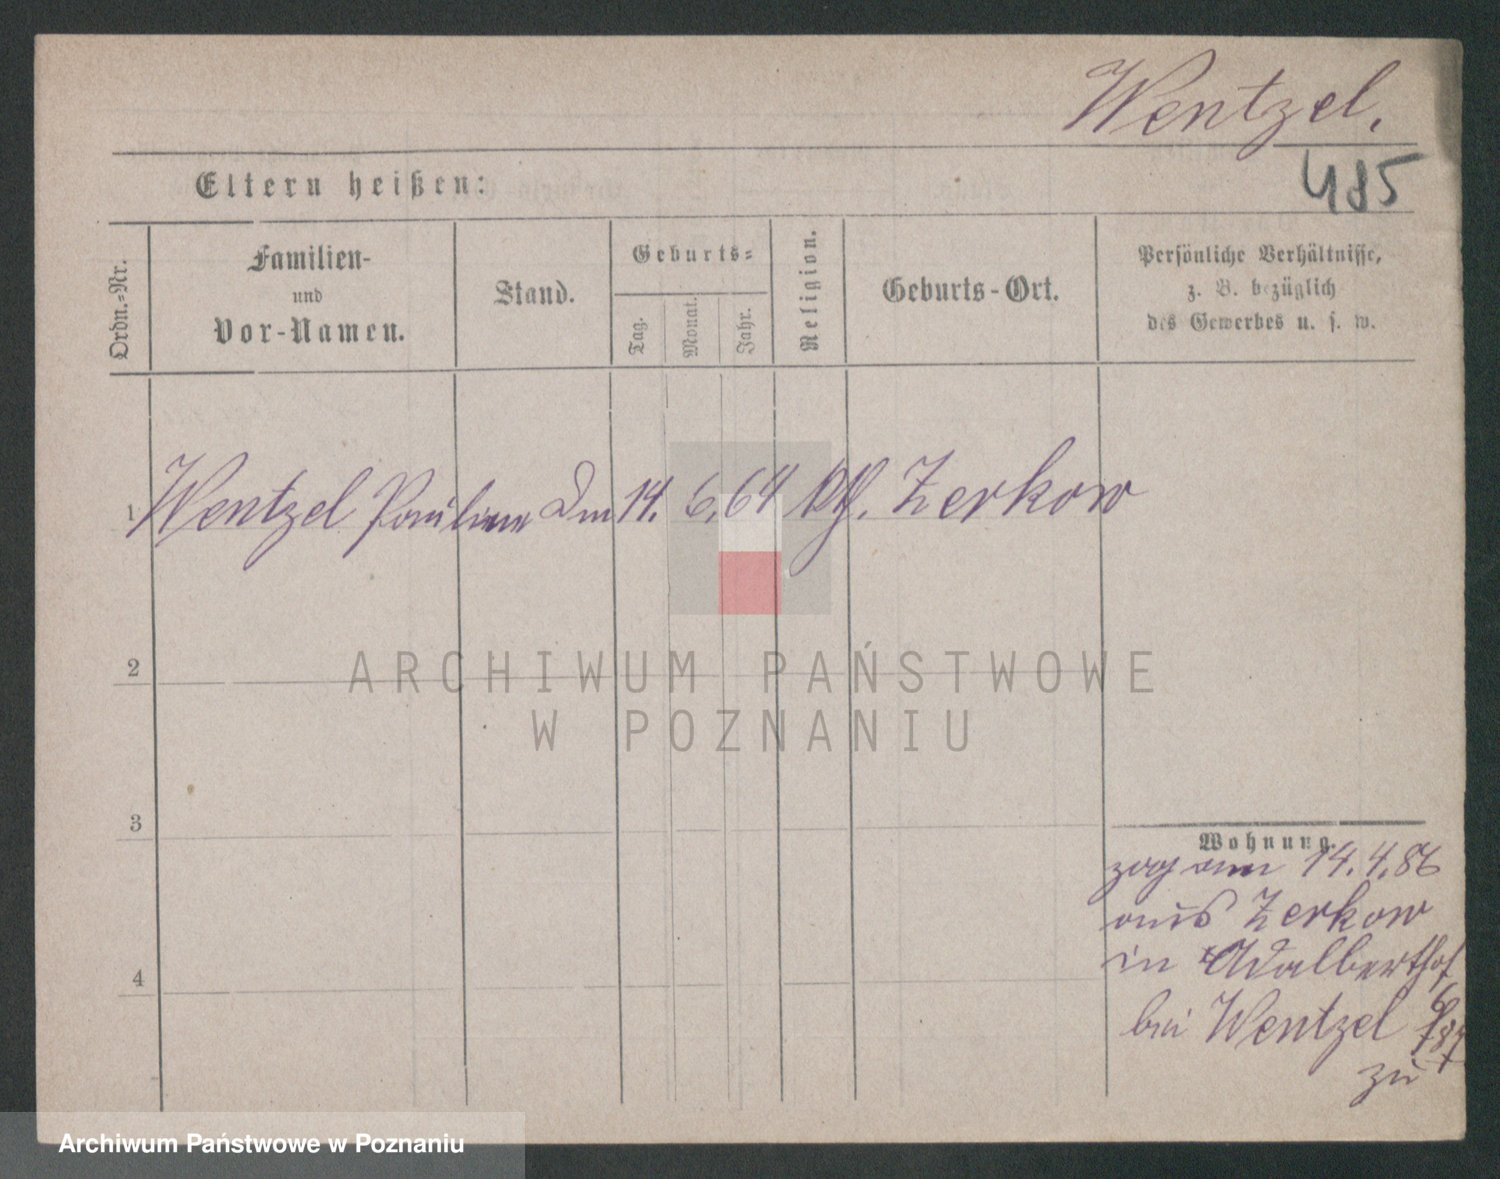 Wentzel.
485
Eltern heißen:
Ordn.-Nr.
Familien-
und
Vor-Namen.
Stand.
Geburts-
Tag.
Monat.
Jahr.
Religion.
Geburts-Ort.
Persönliche Verhältnisse,
z. B. bezüglich
des Gewerbes u. s. w.
1 Wentzel Pauline 14. 6. 64 Zerkow
ARCHIWUM PAŃSTWOWE
W POZNANIU
2
3
4
Wohnung.
zog am 14.4.86
aus Zerkow
in Adalberthof
bei Wentzel
zu
Archiwum Państwowe w Poznaniu